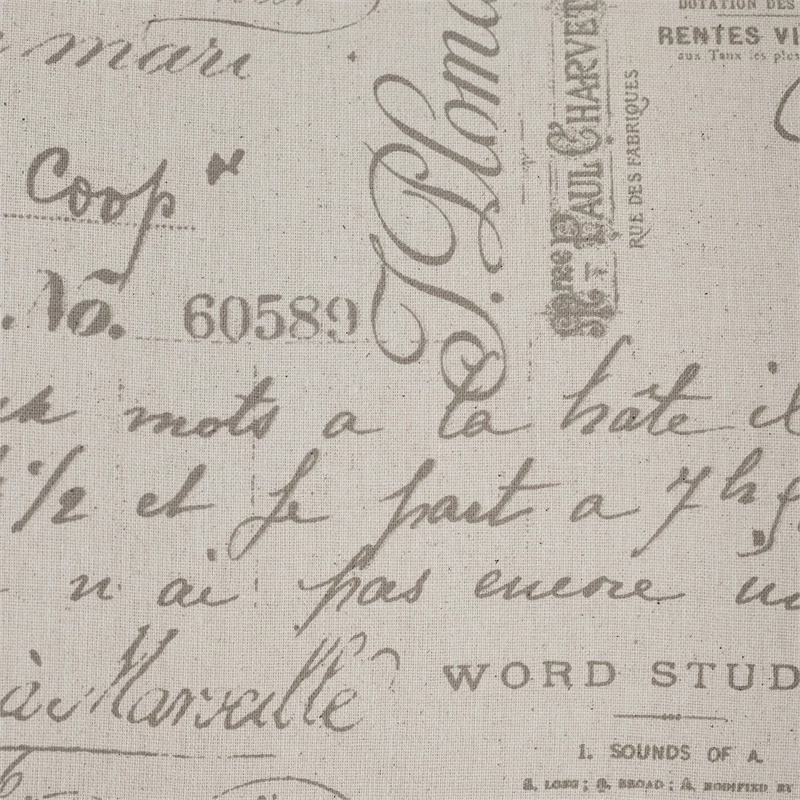 DOTATION DES
RENTES VI
aux Taux les plus
mari
Coop
No. 60589
J. Plom
PAUL CHARVET
RUE DES FABRIQUES
mots a la hâte il
1/2 et je part a 7 h
n ai pas encore
à Marseille
WORD STUD
1. SOUNDS OF A
A, LONG; A, BROAD; A, MODIFIED BY